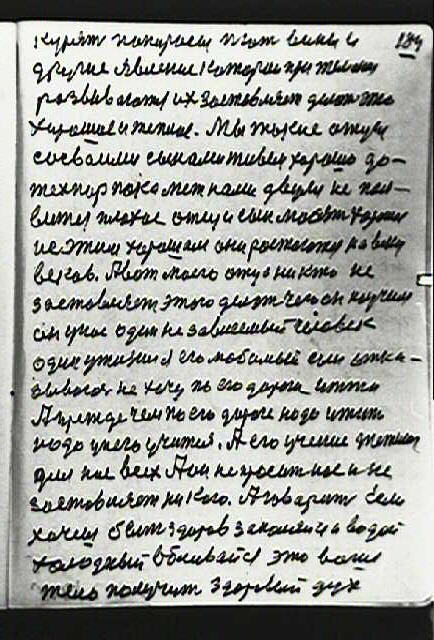 курят папиросы пют вино и 184
другие явление которое при телени
развивают их заставляет делат это
хорошое и теплое. Мы такие отцы
сосвоими сынами живем хорошо до-
техпор пока между нами двумя не поя-
вится плохое отец и сын любят хорошое
и с этим хорошим они ростаются на веки
веков. А вот моего отца никто не
заставляет этого делат чего он научил
он унас один не зависемый человек
один уженя я его любимый сын отка-
зываюся не хочу по его дороги итти
А прежде чем по его дороге надо итти
надо унего учится. А его учение
для нас всех А он не просит нас и не
заставляет никого. А говарит если
хочеш быть здоров закаляйся водой
холодный обливайся это ваше
тело получит здоровый дух